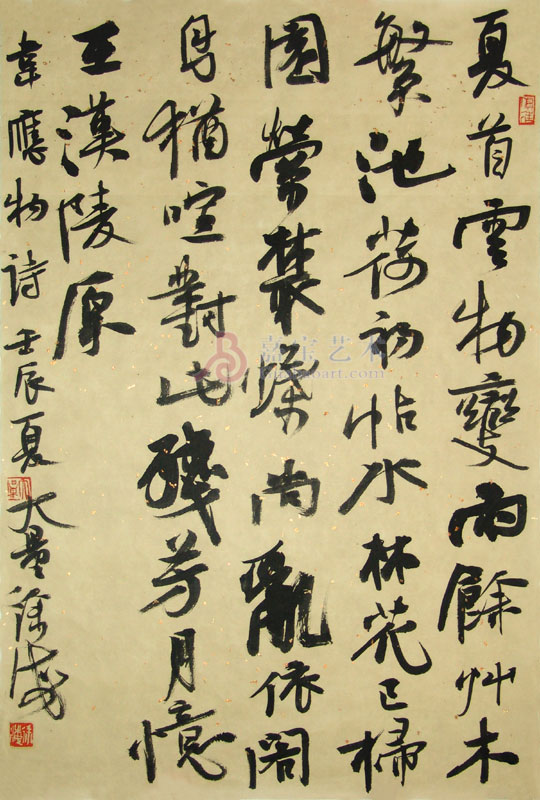 夏首雲物變雨餘艸木
繁池荷初帖水林花已掃
園縈叢蝶尚亂依閣
鳥猶喧對此殘芳月憶
在漢陵原
韋應物詩 壬辰夏 大量徐
嘉宝艺术